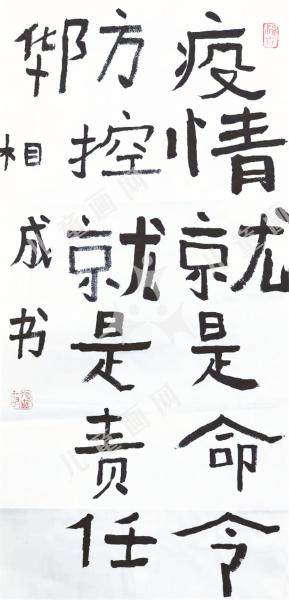 疫情就是命令
防控就是责任
邹相成书
儿童画网